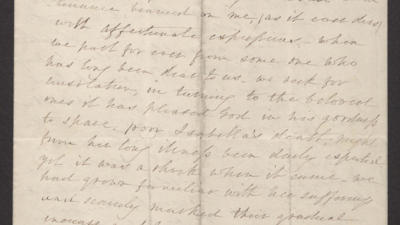 beamed on me, (as it ever does)
with affectionate expressions. when
we part for ever from some one who
has long been dear to us. we seek for
consolation, in turning to the beloved
ones it has pleased God in his goodness
to spare. poor Isabella's death, might
from her long illness been daily expected
yet it was a shock when it came. we
had grown familiar with her sufferings
and scarcely marked their gradual